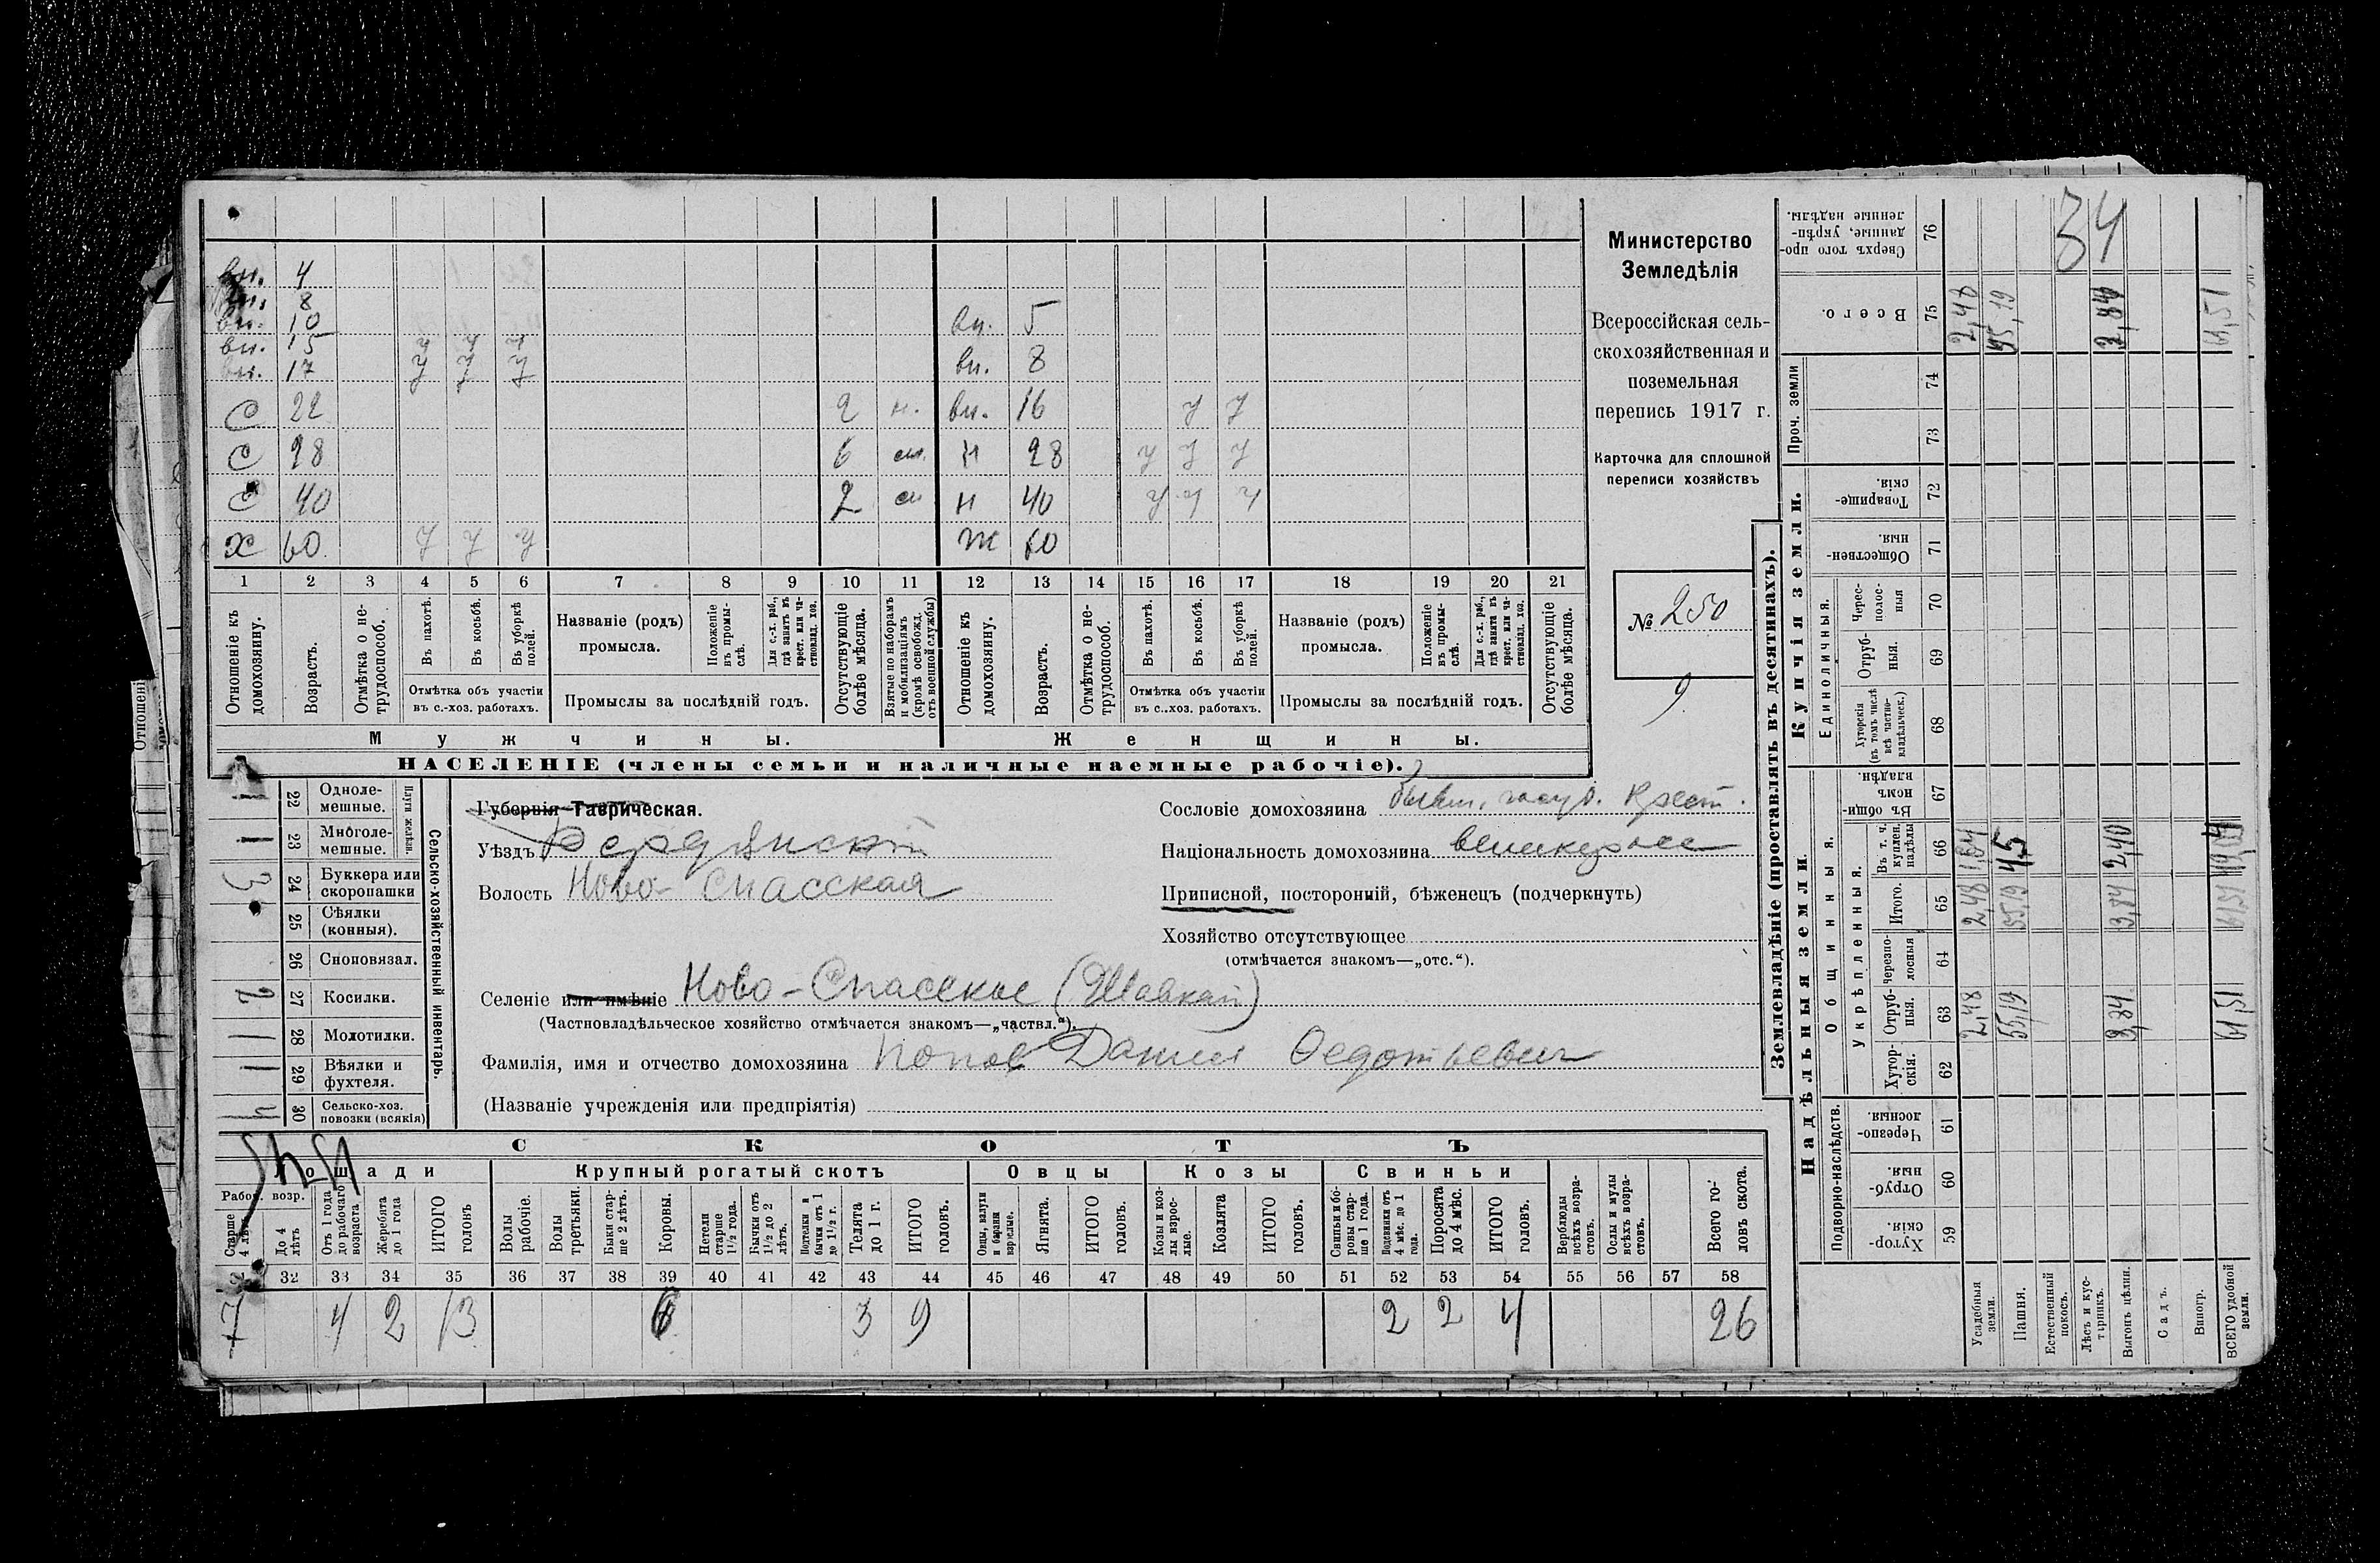 вн. 4
вн. 8
вн. 10 вн. 5
вн. 15 у у у
вн. 17 у у у вн. 8
С 22 2 н. вн. 16 у у
С 28 6 сн. н 28 у у у
С 40 2 сн н 40 у у у
Х 60 у у у Ж 60
1 2 3 4 5 6 7 8 9 10 11 12 13 14 15 16 17 18 19 20 21
Отношеніе къ домохозяину.
Возрастъ.
Отмѣтка о не-трудоспособ.
Въ пахотѣ.
Въ косьбѣ.
Въ уборкѣ полей.
Отмѣтка объ участіи
въ с.-хоз. работахъ.
Названіе (родъ)
промысла.
Положеніе въ промы-слѣ.
Для с.-х. раб., гдѣ занятъ въ крест. или ча-стновлад. хоз.
Промыслы за послѣдній годъ.
Отсутствующіе болѣе мѣсяца.
Взятые по наборамъ и мобилизаціямъ (кромѣ освобожд. отъ военной службы)
Отношеніе къ домохозяину.
Возрастъ.
Отмѣтка о не-трудоспособ.
Въ пахотѣ.
Въ косьбѣ.
Въ уборкѣ полей.
Отмѣтка объ участіи
въ с..хоз. работахъ.
Названіе (родъ)
промысла.
Положеніе въ промы-слѣ.
Для с.-х. раб., гдѣ занята въ крест. или ча-стновлад. хоз.
Промыслы за послѣдній годъ.
Отсутствующіе болѣе мѣсяца.
Мужчины. Женщины.
НАСЕЛЕНІЕ (члены семьи и наличные наемные рабочіе).
Министерство
Земледѣлія
Всероссійская сель-
скохозяйственная и
поземельная
перепись 1917 г.
Карточка для сплошной
переписи хозяйствъ
№ 250
9
Сельско-хозяйственный инвентарь.
Плуги желѣзн.
1 22 Одноле-мешные.
1 23 Многоле-мешные.
3 24 Буккера или скоропашки
25 Сѣялки (конныя).
26 Сноповязал.
2 27 Косилки.
1 28 Молотилки.
1 29 Вѣялки и фухтеля.
4 30 Сельско-хоз. повозки (всякія)
Губернія Таврическая.
Уѣздъ Бердянскій
Волость Ново-Спасская
Селеніе или имѣніе Ново-Спасское (Шавкай)
(Частновладѣльческое хозяйство отмѣчается знакомъ—„частвл.“).
Фамилія, имя и отчество домохозяина Попов Данил Федотьевич
(Названіе учрежденія или предпріятія)
Сословіе домохозяина бывш. госуд. крест.
Національность домохозяина великоросс
Приписной, посторонній, бѣженецъ (подчеркнуть)
Хозяйство отсутствующее
(отмѣчается знакомъ—„отс.“).
СКОТЪ
Лошади Крупный рогатый скотъ Овцы Козы Свиньи
Рабоч. возр.
Старше 4 лѣтъ
До 4 лѣтъ
Отъ 1 года до рабочаго возраста
Жеребята до 1 года
ИТОГО головъ
Волы рабочіе.
Волы третьяки.
Быки стар-ше 2 лѣтъ.
Коровы.
Нетели старше 1½ года.
Бычки отъ 1½ до 2 лѣтъ.
Подтелки и бычки отъ 1 до 1½ г.
Телята до 1 г.
ИТОГО головъ.
Овцы, валухи и бараны взрослые.
Ягнята.
ИТОГО головъ.
Козы и коз-лы взрос-лые.
Козлята
ИТОГО головъ.
Свиньи и бо-ровы стар-ше 1 года.
Подсвинки отъ 4 мѣс. до 1 года.
Поросята до 4 мѣс.
ИТОГО головъ.
Верблюды всѣхъ возра-стовъ.
Ослы и мулы всѣхъ возра-стовъ.
Всего го-ловъ скота.
32 33 34 35 36 37 38 39 40 41 42 43 44 45 46 47 48 49 50 51 52 53 54 55 56 57 58
7 4 2 13 6 3 9 2 2 4 26
Землевладѣніе (проставлять въ десятинахъ).
Надѣльныя земли. Купчія земли.
Подворно-наслѣдств.
Общинныя.
Укрѣпленныя.
Единоличныя.
Проч. земли
Хутор-скія. 59
Отруб-ныя. 60
Черезпо-лосныя. 61
Хутор-скія. 62
Отруб-ныя. 63
Черезпо-лосныя 64
Итого. 65
Въ т. ч. куплен. надѣлы 66
Въ общин-номъ владѣн. 67
Хуторскія (въ томъ числѣ всѣ частно-владѣльческ.) 68
Отруб-ныя. 69
Черес-полос-ныя 70
Обществен-ныя. 71
Товарище-скія. 72
73 74
Всего. 75
Сверхъ того про-данные, укрѣп-ленные надѣлы. 76
34
Усадебныя земли. 2,48 2,48 1,84 2,48
Пашня. 55,19 55,19 45 55,19
Естественный покосъ.
Лѣсъ и кус-тарникъ.
Выгонъ цѣлин. 3,84 3,84 2,40 3,84
Садъ.
Виногр.
ВСЕГО удобной земли. 61,51 61,51 61,51